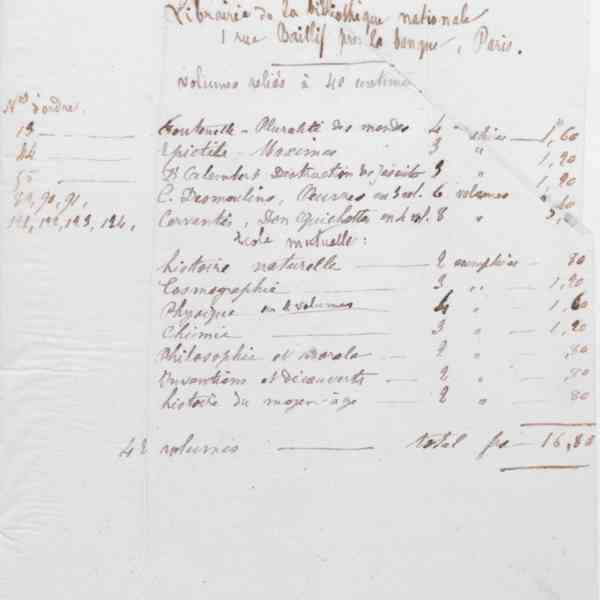 Librairie de la bibliothèque nationale
1 rue Baillif près la banque, Paris.
volumes reliés à 40 centimes
Nos d'ordre.
13 — Fontenelle - Pluralité des mondes 4 — 1,60
44 — Epictète - Maximes 3 " 1,20
55 — D'Alembert Destruction des Jésuites 3 " 1,20
89, 90, 91, C. Desmoulins, Oeuvres en 3 vol. 6 volumes
121, 122, 123, 124, Cervantès, Don Quichotte en 4 vol. 8 "
École mutuelle:
histoire naturelle — 2 exemplaires — 80
Cosmographie — 3 " — 1,20
Physique en 2 volumes — 4 " — 1,60
Chimie — 3 " — 1,20
Philosophie et morale — 2 " — ,80
Inventions et découverts — 2 " — ,80
histoire du moyen-âge — 2 " — 80
42 volumes — total frs — 16,80